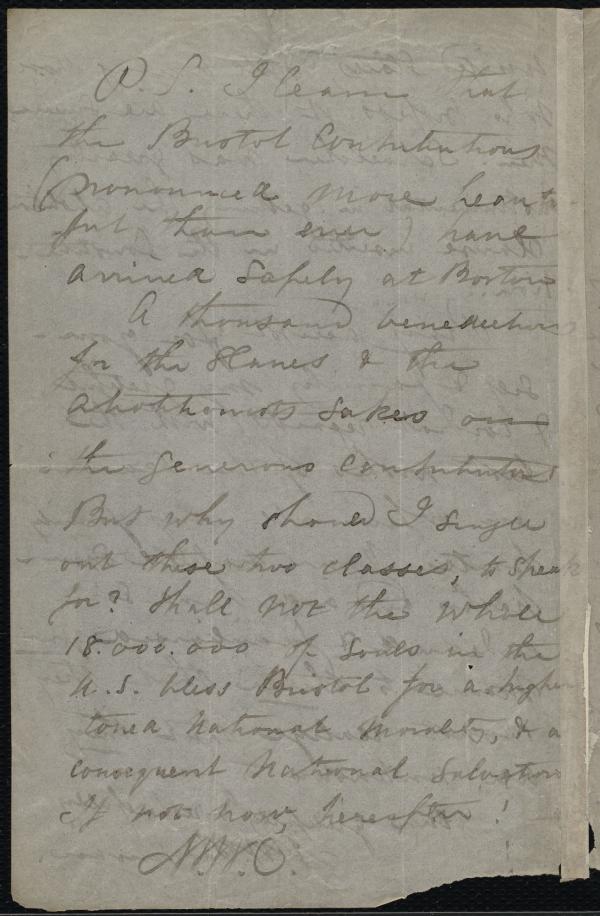 P.S. I learn that
the Bristol Contributions
(pronounced more beauti-
ful than ever) have
arrived safely at Boston
A thousand benedictions
for the Slaves & the
abolitionists sakes on
the generous contributors
But why should I single
out these two classes, to speak
for? Shall not the whole
18.000.000 of Souls in the
U.S. bless Bristol for a higher
toned National Morality, & a
consequent National Salvation
If not now, hereafter!